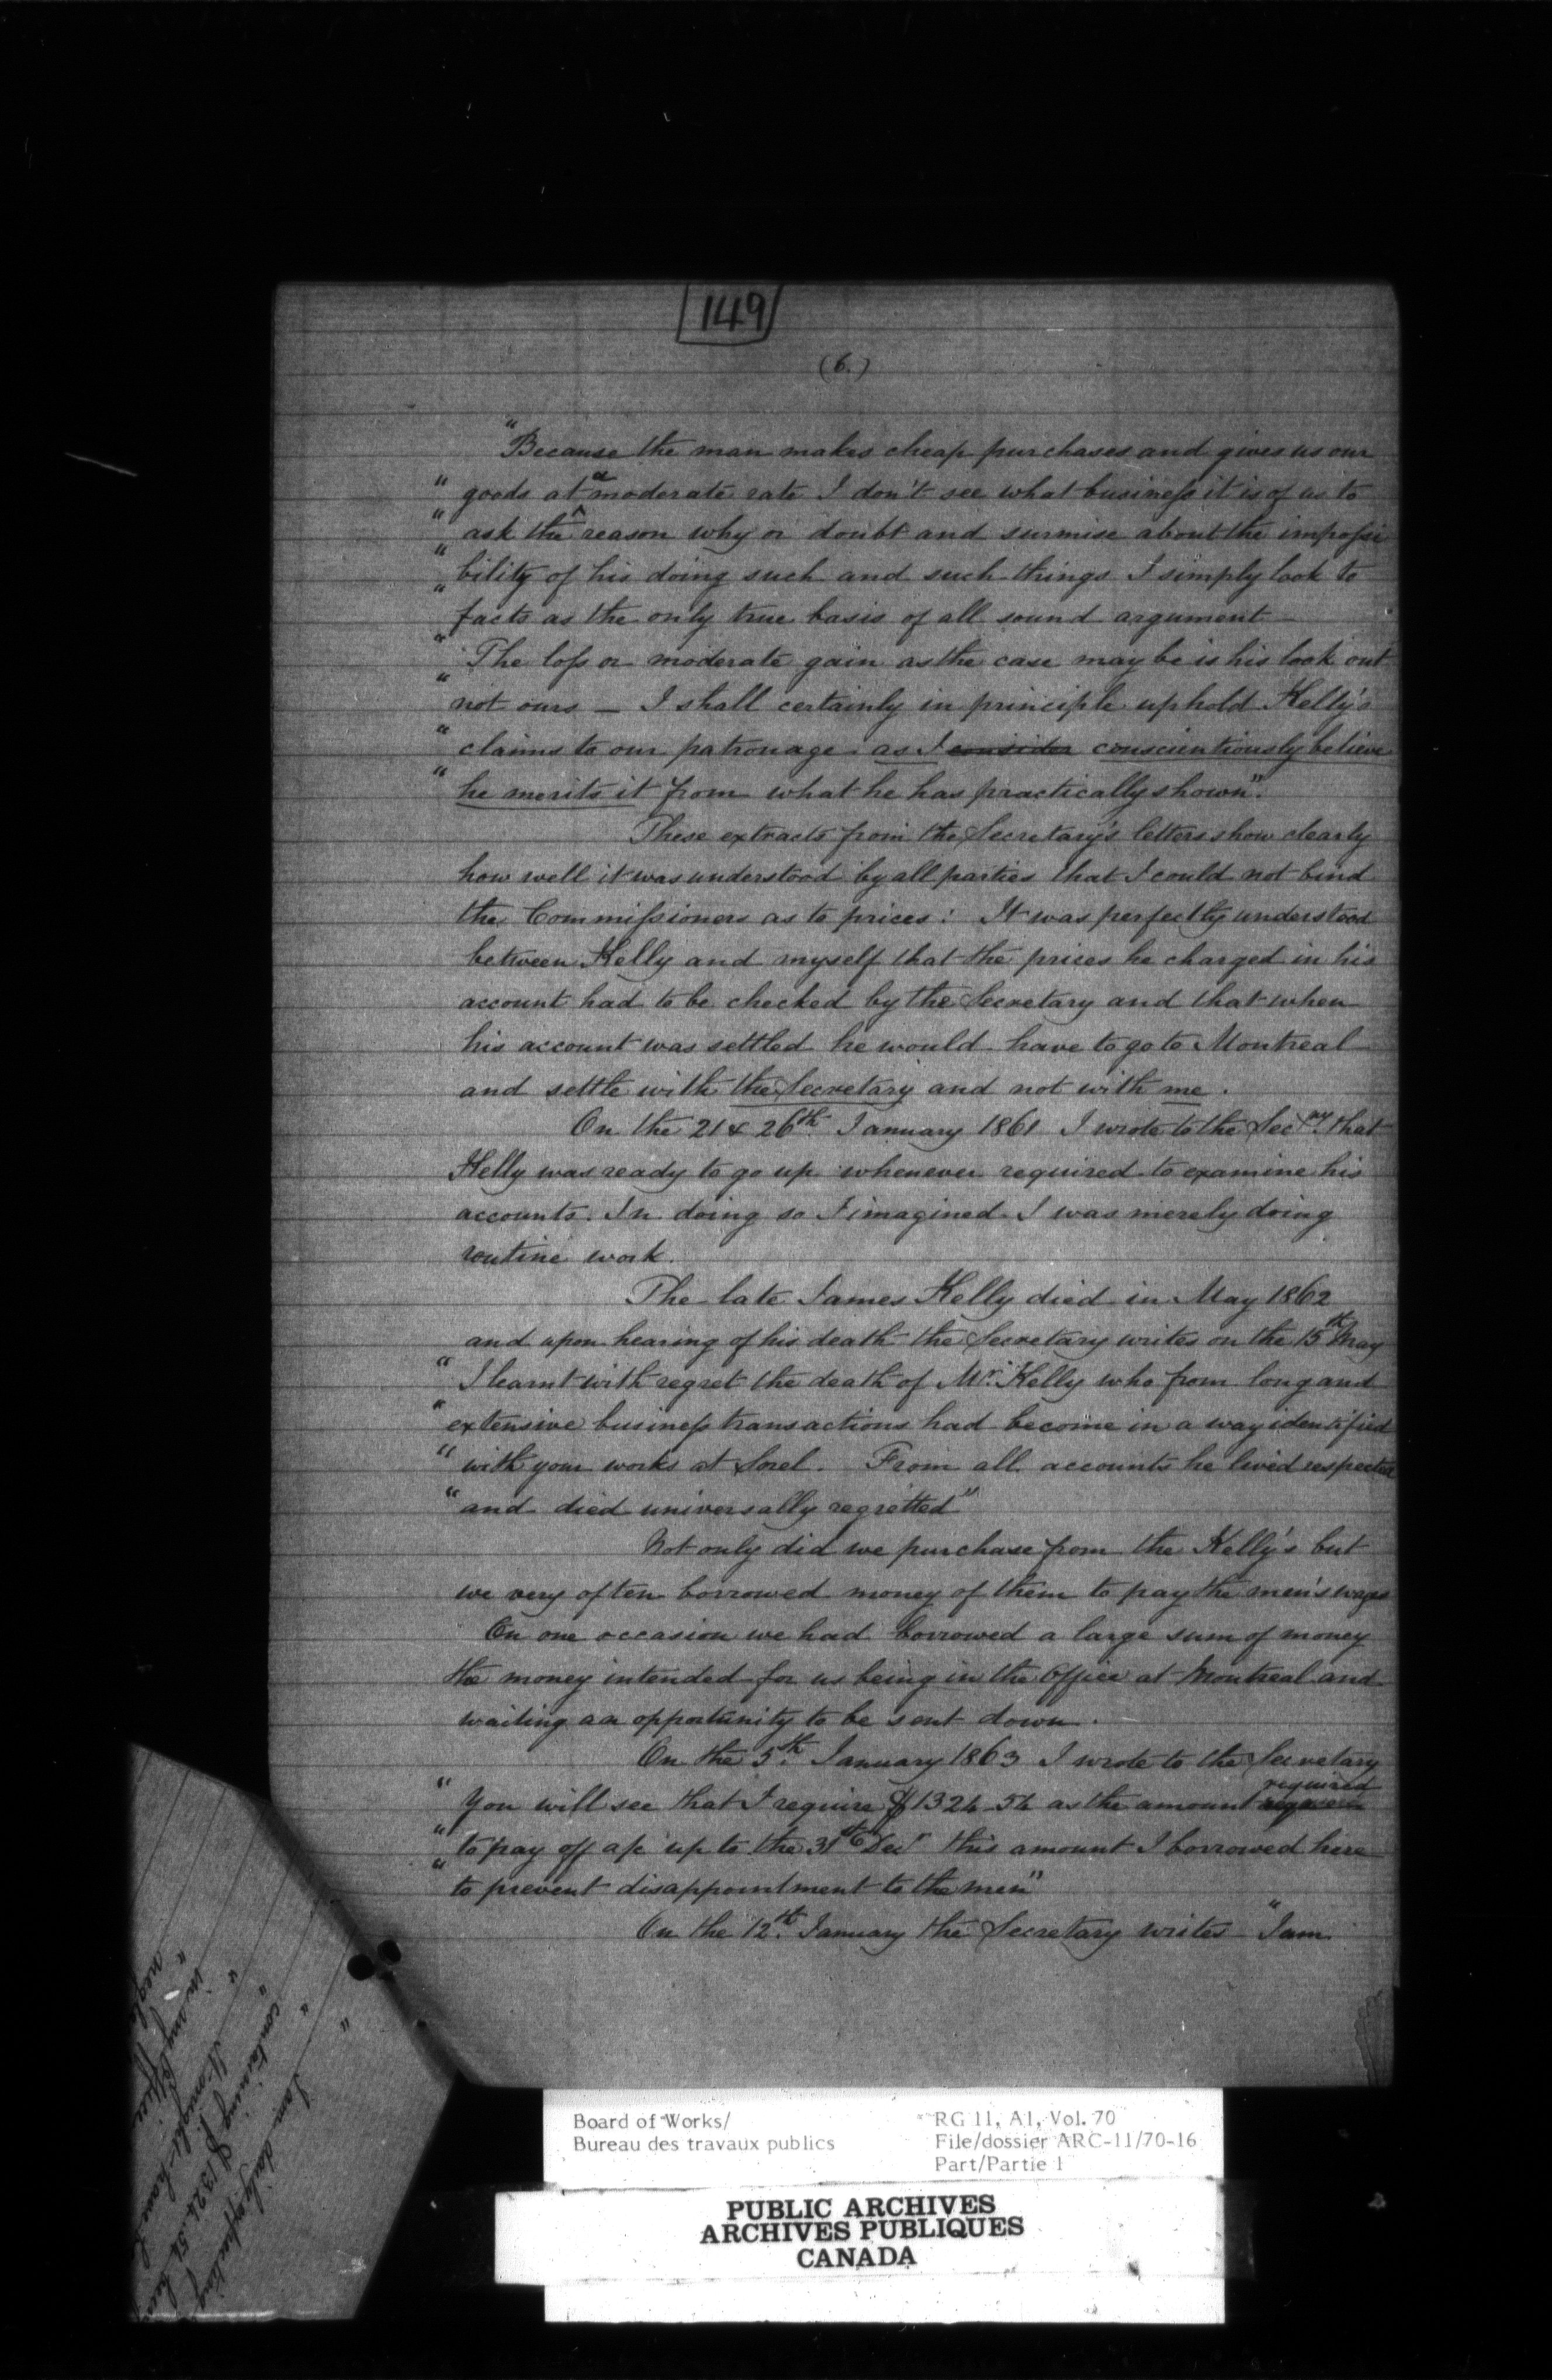 149
(6.)
"Because the man makes cheap purchases and gives us our
" goods at a moderate rate I don't see what business it is of us to
" ask the reason why or doubt and surmise about the impossi
" bility of his doing such and such things I simply look to
" facts as the only true basis of all sound argument —
" The loss or moderate gain as the case may be is his look out
" not ours — I shall certainly in principle uphold Kelly's
" claims to our patronage as I consider conscientiously believe
" he merits it from what he has practically shown".
These extracts from the Secretary's letters show clearly
how well it was understood by all parties that I could not bind
the Commissioners as to prices: It was perfectly understood
between Kelly and myself that the prices he charged in his
account had to be checked by the Secretary and that when
his account was settled he would have to go to Montreal
and settle with the Secretary and not with me.
On the 21 & 26th January 1861 I wrote to the Secry that
Kelly was ready to go up whenever required to examine his
accounts. In doing so I imagined I was merely doing
routine work.
The late James Kelly died in May 1862
and upon hearing of his death the Secretary writes on the 15th May
" I learnt with regret the death of Mr. Kelly who from long and
" extensive business transactions had become in a way identified
" with your works at Sorel. From all accounts he lived respected
" and died universally regretted"
Not only did we purchase from the Kelly's but
we very often borrowed money of them to pay the men's wages
On one occasion we had borrowed a large sum of money
the money intended for us being in the Office at Montreal and
waiting an opportunity to be sent down.
On the 5th. January 1863 I wrote to the Secretary
" You will see that I require $1324.54 as the amount required
" to pay off a/c up to the 31st Decr this amount I borrowed here
" to prevent disappointment to the men"
On the 12th. January the Secretary writes "I am
" I am daily expecting
" containing $1324.54 
" It might have
" in my Office
" 
Board of Works/
Bureau des travaux publics
RG 11, A1, Vol. 70
File/dossier ARC-11/70-16
Part/Partie 1
PUBLIC ARCHIVES
ARCHIVES PUBLIQUES
CANADA